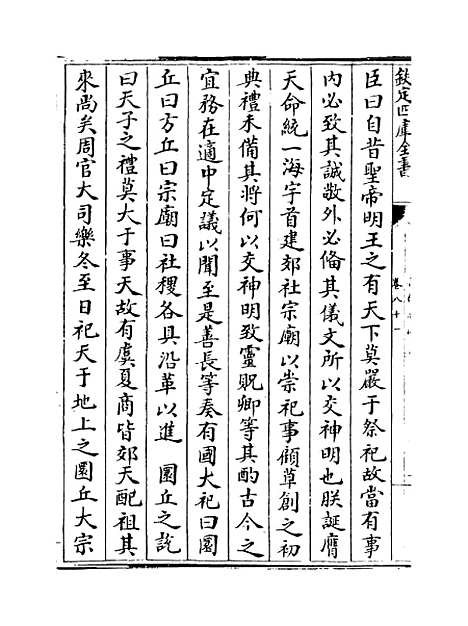 欽定四庫全書
卷八十一
臣曰自昔聖帝明王之有天下莫嚴于祭祀故當有事
内必致其誠敬外必備其儀文所以交神明也朕誕膺
天命統一海宇首建郊社宗廟以崇祀事顧草創之初
典禮未備其將何以交神明致靈貺卿等其酌古今之
宜務在適中定議以聞至是善長等奏有國大祀曰圜
丘曰方丘曰宗廟曰社稷各具沿革以進 圜丘之說
曰天子之禮莫大于事天故有虞夏商皆郊天配祖其
來尚矣周官大司樂冬至日祀天于地上之圜丘大宗